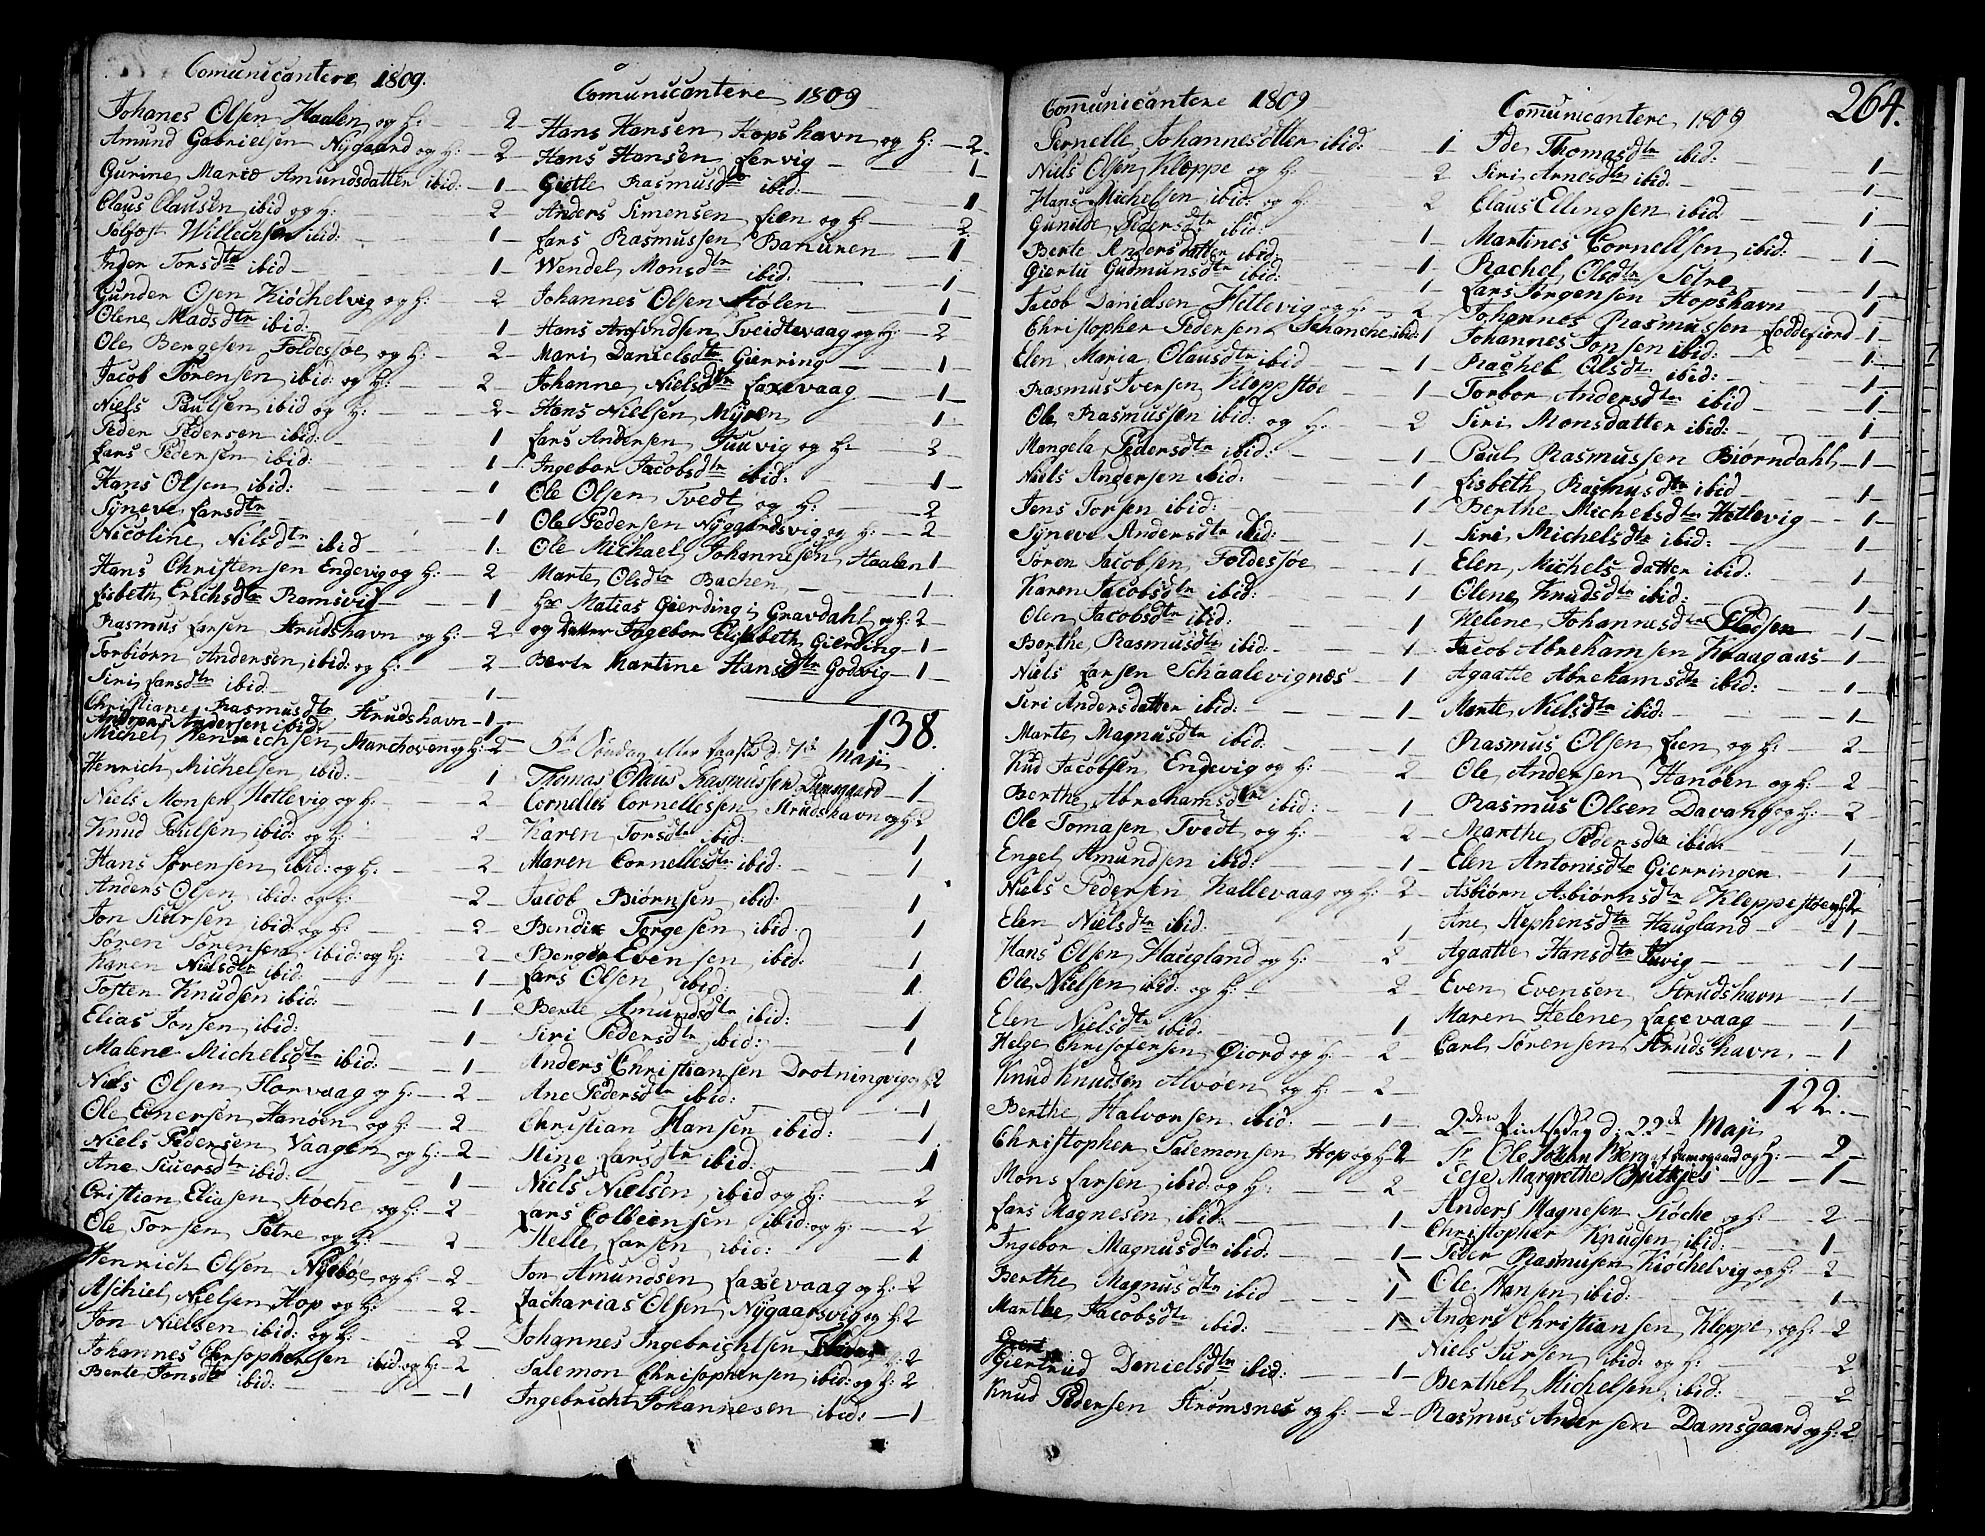 Comunicantere 1809.
Johanes Olsen Haalen og H: 2
Amund Gabrielsen Nygaard og H: 2
Gurine Marie Amundsdatter ibid: 1
Claus Clausen ibid og H: 2
Willechsen ibid: 1
Inger Torsdtr ibid 1
Gunder Olsen Kiøchelvig og H: 2
Olene Madsdtr ibid: 1
Ole Bergesen Foldessøe og H: 2
Jacob Sørensen ibid: og H: 2
Niels Paulsen ibid og H: 2
Peder Pedersen ibid: 1
Lars Pedersen ibid: 1
Hans Olsen ibid: 1
Syneve Larsdtr 1
Nicoline Nilsdtr ibid 1
Hans Christensen Engevig og H: 2
Lisbeth Erichsdtr Ramsvig 1
Rasmus Larsen Strudshavn og H: 2
Torbiørn Andersen ibid: og H: 2
Siri Larsdtr ibid 1
Christiane Rasmusdtr Strudshavn 1
Andreas Andersen ibid:
Michel Henrichsen Marchoven og H: 2
Henrich Michelsen ibid: 1
Niels Monsen Hetlevig og H: 2
Knud Paulsen ibid: og H: 2
Hans Sørensen ibid: og H: 2
Anders Olsen ibid: og H: 2
Jon Siursen ibid: og H: 2
Søren Sørensen ibid: og H: 2
Karen Nielsdtr ibid: 1
Tosten Knudsen ibid: 1
Elias Jonsen ibid: 1
Malene Michelsdtr ibid: 1
Niels Olsen Florvaag og H: 2
Ole Einersen Hanøen og H: 2
Niels Pedersen Vaagen og H: 2
Ane Siuersdtr ibid: 1
Cristian Eliasen Kiøche og H: 2
Ole Torsen Setre og H: 2
Henrich Olsen Nybøe og H: 2
Aschiel Nielsen Hop og H: 2
Jon Nielsen ibid: og H: 2
Johannes Chrsophersen ibid: og H: 2
Berte Jonsdtr ibid: 1
Comunicantere 1809
Hans Hansen Hopshavn og H: 2
Hans Hansen Lervig 1
Giertle Rasmusdtr ibid: 1
Anders Simensen Lien og H: 2
Lars Rasmussen Banuren 1
Wendel Monsdtr ibid: 1
Johannes Olsen Stølen 1
Hans Amundsen Tveidtevaag og H: 2
Mari Danielsdtr Gierring 1
Johanne Nielsdtr Laxevaag 1
Hans Nielsen Myren 1
Lars Andersen Juuvig og H: 2
Ingebor Jacobsdtr ibid: 1
Ole Olsen Tvedt og H: 2
Ole Pedersen Nygaardsvig og H: 2
Ole Michael Johannesen Haalen 1
Marte Olsdtr Bachen 1
Hr Matias Gierding i Gravdahl og H: 2
og datter Ingebor Elisabeth Gierding 1
Berte Martine Hansdtr Godvig 1
138.
5te Søndag efter Paaske d: 7de Maji
Thomas Olaus Rasmussen Damsgaard 1
Cornelles Cornellessen Strudshavn og H: 2
Karen Torsdtr ibid: 1
Maren Cornellesdtr ibid: 1
Jacob Biørnsen ibid: 1
Bendix Torgesen ibid: 1
Berger Evensen ibid: 1
Lars Olsen ibid: 1
Berte Amundsdtr ibid: 1
Siri Pedersdtr ibid: 1
Anders Christiansen Drotningvig og H: 2
Ane Pedersdtr ibid: 1
Christian Hansen ibid: 1
Stine Larsdtr ibid: 1
Niels Nielsen ibid og H: 2
Lars Colbeensen ibid: og H: 2
Helle Larsen ibid: 1
Jon Amundsen Laxevaag og H: 2
Zacharias Olsen Nygaarsvig og H: 2
Johannes Ingebrichtsen H: 2
Salemon Chrisophersen ibid: og H: 2
Ingebricht Johannesen ibid: 1
264.
Comunicantere 1809
Pernelle Johannesdtter ibid: 1
Niels Olsen Kleppe og H: 2
Hans Michelsen ibid: og H: 2
Gunilde Pedersdtr ibid: 1
Berte Andersdatter ibid: 1
Giertu Gudmunsdtr ibid: 1
Jacob Danielsen Hetlevig og H: 2
Christopher Pedersen Schanche ibid: 1
Elen Maria Olausdtr ibid 1
Rasmus Iversen Kleppstøe 1
Ole Rasmussen ibid: og H: 2
Mangela Pedersdtr ibid: 1
Niels Andersen ibid: 1
Jens Torsen ibid: 1
Syneve Andersdtr ibid: 1
Søren Jacobsen Foldessøe 1
Karen Jacobsdtr ibid: 1
Olen Jacobsdtr ibid: 1
Berthe Rasmusdtr ibid: 1
Niels Larsen Schaalevignæs 1
Siri Andersdatter ibid: 1
Marte Magnusdtr ibid: 1
Knud Jacobsen Engevig og H: 2
Berthe Abrehamsdtr ibid: 1
Ole Tomasen Tvedt og H: 2
Engel Amundsen ibid: 1
Niels Pedersen Kallevaag og H: 2
Elen Nielsdtr ibid: 1
Hans Olsen Haugland og H: 2
Ole Nielsen ibid: og H: 2
Elen Nielsdtr ibid: 1
Helge Chrisofersen Øiord og H: 2
Knud Knudsen Alvøen og H: 2
Berthe Halvorsen ibid: 1
Christopher Salemonsen Hop og H: 2
Mons Larsen ibid: og H: 2
Lars Magnesen ibid: 1
Ingebor Magnusdtr ibid: 1
Berthe Magnusdtr ibid 1
Marthe Jacobsdtr ibid: 1
Giertrud Danielsdtr ibid: 1
Knud Pedersen Strømsnes og H: 2
Comunicantere 1809
Ide Thomasdtr ibid: 1
Siri Arnesdtr ibid: 1
Claus Ellingsen ibid 1
Martines Cornellsen ibid: 1
Rachel Olsdtr Setre 1
Lars Jørgensen Hopshavn 1
Johannes Rasmussen Loddefiord 1
Johannes Jonsen ibid: 1
Rachel Olsdtr ibid: 1
Torbor Andersdtr ibid 1
Siri Monsdatter ibid: 1
Paul Rasmussen Biørndahl 1
Lisbeth Rasmusdtr ibid 1
Berthe Michelsdtr Hetlevig 1
Siri Michelsdtr ibid: 1
Elen Michelsdatter ibid: 1
Olene Knudsdtr ibid: 1
Helene Johannesdtr Pladsen 1
Jacob Abrehamsen Kraugaas 1
Agaatte Abrehamsdtr ibid: 1
Marte Nielsdtr ibid: 1
Rasmus Olsen Lien og H: 2
Ole Andersen Hanøen og H: 2
Rasmus Olsen Davang og H: 2
Marthe Pedersdtr ibid: 1
Elen Antonisdtr Gierringen 1
Asbiørn Asbiørnsdtr Kleppestøe og H: 2
Ane Stephensdtr Haugland 1
Agaatte Hansdtr Juvig 1
Even Evensen Strudshavn 1
Maren Helene Laxevaag 1
Carl Sørensen Strudshavn 1
122.
2den Pintsedag d: 22de Maji
Sr Ole Johan Berg af Damsgaard og H: 2
Else Margrethe 1
Anders Magnesen Kiøche og H: 2
Christopher Knudsen ibid: 1
Peder Rasmusen Kiochelvig og H: 2
Ole Hansen ibid: 1
Anders Christiansen Kleppe og H: 2
Niels Siursen ibid: og H: 2
Berthel Michelsen ibid: 2
Rasmus Andersen Damsgaard og H: 2